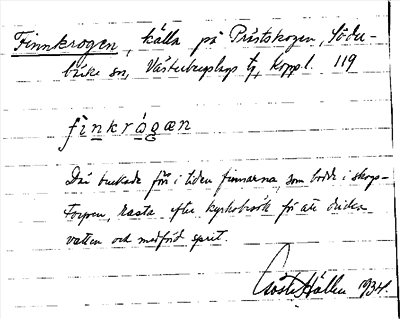 Finnkrogen, källa på Prästskogen, Söder-
bärke sn, Västerbergslags tg, Koppl. 119
finkrógæn
Där brukade förr i tiden finnarna, som bodde i skogs-
torpen, rasta efter kyrkobesök för att dricka
vatten och medförd sprit.
Gösta Hallen 1934.